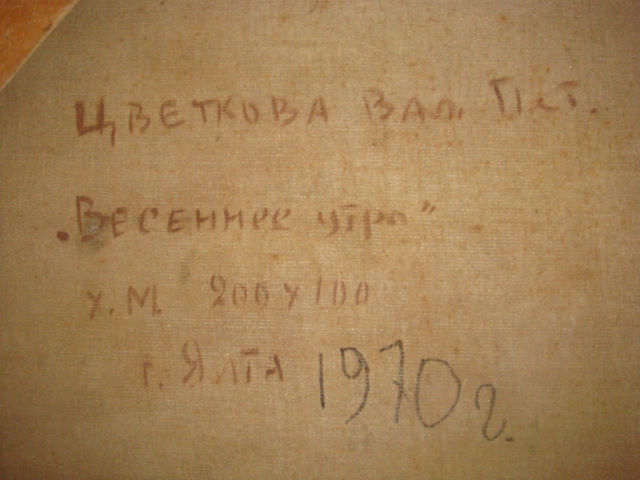 Цветкова Вал. Пет.
„Весеннее утро"
х.м. 200х100
г. Ялта 1970 г.